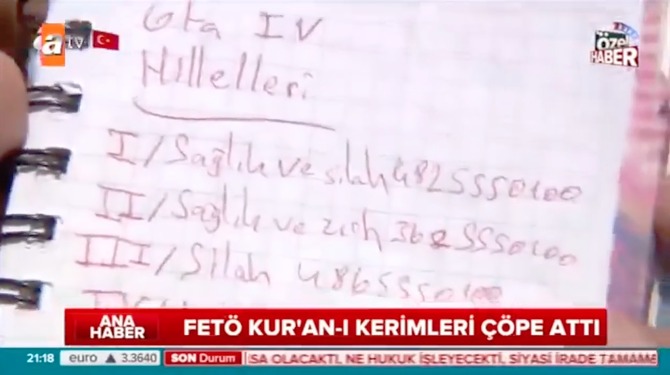 Gta IV
ÖZEL HABER
a tv
Hilleleri
I/Sağlık ve silah 4825550100
II/Sağlık ve zırh 3625550100
III/Silah 4865550100
ANA HABER
FETÖ KUR'AN-I KERİMLERİ ÇÖPE ATTI
21:18 euro ▲ 3.3640 SON Durum SA OLACAKTI, NE HUKUK İŞLEYECEKTİ, SİYASİ İRADE TAMAME